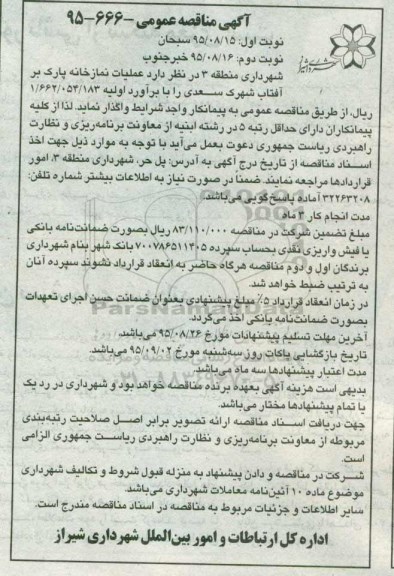 آگهی مناقصه عمومی -۶۶۶-۹۵
نوبت اول: ۹۵/۰۸/۱۵ سبحان
نوبت دوم: ۹۵/۰۸/۱۶ خبرجنوب
شهرداری منطقه ۳ در نظر دارد عملیات نمازخانه پارک بر
آفتاب شهرک سعدی را با برآورد اولیه ۱/۶۶۲/۰۵۳/۱۸۳
ریال، از طریق مناقصه عمومی به پیمانکار واجد شرایط واگذار نماید. لذا از کلیه
پیمانکاران دارای حداقل رتبه ۵ در رشته ابنیه از معاونت برنامه‌ریزی و نظارت
راهبردی ریاست جمهوری دعوت بعمل می‌آید با توجه به موارد ذیل جهت اخذ
اسناد مناقصه از تاریخ درج آگهی به آدرس: پل حر، شهرداری منطقه ۳، امور
قراردادها مراجعه نمایند. ضمنا در صورت نیاز به اطلاعات بیشتر شماره تلفن:
۳۲۲۶۳۲۰۸ آماده پاسخ‌گویی می‌باشد.
مدت انجام کار ۳ ماه
مبلغ تضمین شرکت در مناقصه ۸۳/۱۱۰/۰۰۰ ریال بصورت ضمانت‌نامه بانکی
یا فیش واریزی نقدی بحساب سپرده ۷۰۰۷۸۶۵۱۱۴۰۵ بانک شهر بنام شهرداری
برندگان اول و دوم مناقصه هرگاه حاضر به انعقاد قرارداد نشوند سپرده آنان
به ترتیب ضبط خواهد شد.
در زمان انعقاد قرارداد ۵٪ مبلغ پیشنهادی بعنوان ضمانت حسن اجرای تعهدات
بصورت ضمانت‌نامه بانکی اخذ می‌گردد.
آخرین مهلت تسلیم پیشنهادات مورخ ۹۵/۰۸/۲۶ می‌باشد.
تاریخ بازگشایی پاکات روز سه‌شنبه مورخ ۹۵/۰۹/۰۲ می‌باشد.
مدت اعتبار پیشنهادها سه ماه می‌باشد.
بدیهی است هزینه آگهی بعهده برنده مناقصه خواهد بود و شهرداری در رد یک
یا تمام پیشنهادها مختار می‌باشد.
جهت دریافت اسناد مناقصه ارائه تصویر برابر اصل صلاحیت رتبه‌بندی
مربوطه از معاونت برنامه‌ریزی و نظارت راهبردی ریاست جمهوری الزامی
است.
شرکت در مناقصه و دادن پیشنهاد به منزله قبول شروط و تکالیف شهرداری
موضوع ماده ۱۰ آئین‌نامه معاملات شهرداری می‌باشد.
سایر اطلاعات و جزئیات مربوط به مناقصه در اسناد مناقصه مندرج است.
اداره کل ارتباطات و امور بین‌الملل شهرداری شیراز